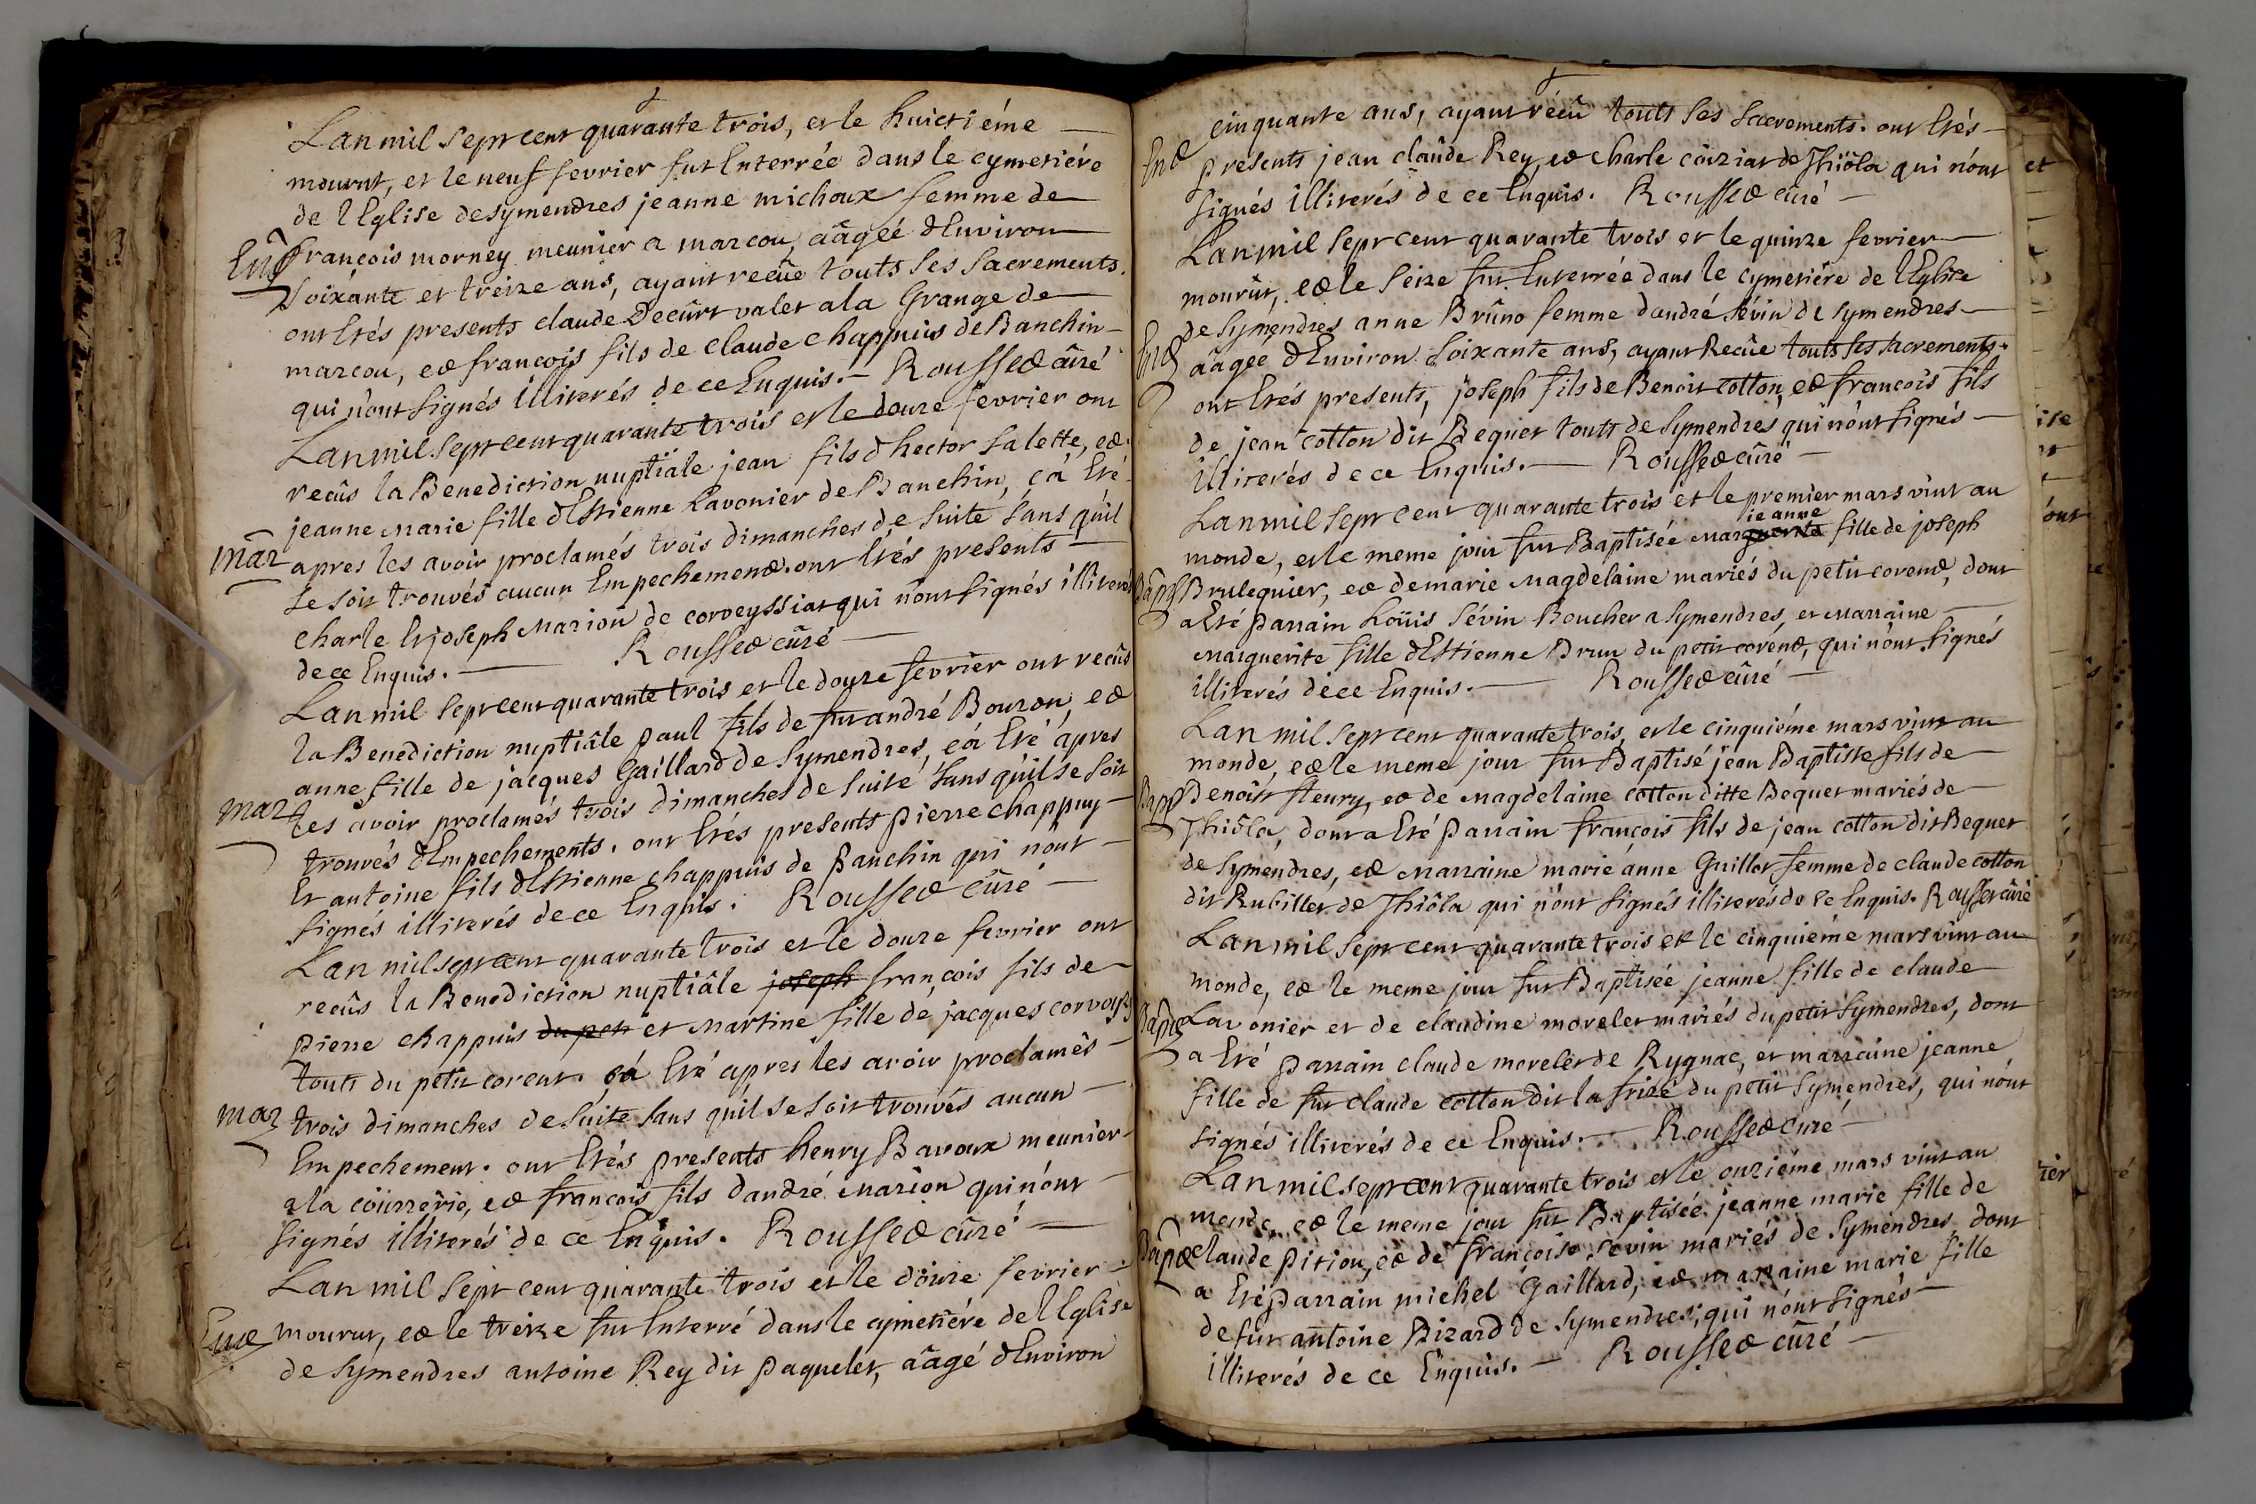 Lan mil sept cent quarante trois, et le huictiéme
mourut, et le neuf fevrier fut Enterrée dans le cymetiére
de lEglise de symendres jeanne michoux femme de
Ent francois morney meunier a marcou, aâgéé dEnviron
soixante et treize ans, ayant recûe touts ses sacrements.
ont Etés presents claude Decûrt valet a la Grange de
marcou, et francois fils de claude chappuis de Banchin
qui nònt signés illiterés de ce Enquis. Rousset cûré
Lan mil sept cent quarante trois et le douze fevrier ont
recûs la Benediction nuptiâle jean fils dhector salette, et
jeanne marie fille dEstienne Lavonier de Banchin, çá Eté
Mar apres les avoir proclamés trois dimanches de suite sans qùil
se soit trouvés aucun Empechement. ont Etés presents
charle Et joseph Marion de corveyssiat qui nònt signés illiterés
de ce Enquis. Rousset cûré
Lan mil sept cent quarante trois et le douze fevrier ont recûs
la Benediction nuptiâle paul fils de fut andré Bouzon, et
anne fille de jacques Gaillard de symendres, çá Eté ápres
mar les avoir proclamés trois dimanches de suite sans qùil se soit
trouvés dEmpechements. ont Etés presents pierre chappuy
Et antoine fils dEstienne chappuis de Banchin qui nònt
signés illiterés de ce Enquis. Rousset cûré
Lan mil sept cent quarante trois et le douze fevrier ont
recûs la Benediction nuptiâle joseph francois fils de
pierre chappuis du peti et Martine fille de jacques corvoysy
touts du petit corent. çá Eté ápres les avoir proclamés
mar trois dimanches de suite sans quil se soit trouvés aucun
Empechement. ont Etés presents henry Bavoux meunier
a la coûrrerie, et francois fils dandré Marion qui nònt
signés illiterés de ce Enquis. Rousset cûré
Lan mil sept cent quarante trois et le doûze fevrier
Ent mourut, et le treize fut Enterré dans le cymetiére de lEglise
de symendres antoine Rey dit paquelet, aâgé dEnviron
cinquante ans, ayant récû touts ses sacrements. ont Etés
Ent presents jean claûde Rey, et charle coûziat de Thiôla qui nònt
signés illiterés de ce Enquis. Rousset cûré
Lan mil sept cent quarante trois et le quinze fevrier
mourût, et le seize fut Enterrée dans le cymetiére de lEglise
de symendres anne Brûno femme dandré sévin de symendres
Ent aâgée dEnviron soixante ans, ayant Recûe touts ses sacrements.
ont Etés presents, joseph fils de Benoit cotton, et francois fils
de jean cotton dit Bequet touts de symendres qui nònt signés
illiterés de ce Enquis. Rousset cûré
Lan mil sept cent quarante trois et le premier mars vint au
jeanne
monde, et le meme jour fut Baptisée marguerite fille de joseph
Bapt Brulequier, et de marie Magdelaine mariés du petit corent, dont
a Eté parrain Loüis sévin Boucher a symendres, et Marraine
Marguerite fille dEstienne Brun du petit corént, qui nònt signés
illiterés de ce Enquis. Rousset cûré
Lan mil sept cent quarante trois, et le cinquiéme mars vint au
monde, et le meme jour fut Baptisé jean Baptiste fils de
Bapt Benoist fleury, et de Magdelaine cotton ditte Bequet mariés de
Thiôla, dont a Eté parrain francois fils de jean cotton dit Bequet
de symendres, et Marraine marie ánne Guillot femme de claude cotton
dit Rubillet de Thiôla qui nònt signés illiterés de ce Enquis. Rousset cûré
Lan mil sept cent quarante trois et le cinquiéme mars vint au
monde, et le meme jour fut Baptisée jeanne fille de claude
Bapt Lavonier et de claudine morelet mariés du petit symendres, dont
a Eté parrain claude morelet de Rygnac, et marraine jeanne
fille de fut claude cotton dit la frizé du petit symendres, qui nònt
signés illiterés de ce Enquis. Rousset cûré
Lan mil sept cent quarante trois et le onziéme mars vint au
monde, et le meme jour fut Baptisée jeanne marie fille de
Bapt claude pition, et de francoise sévin mariés de symendres dont
a Eté parrain michel Gaillard, et marraine marie fille
de fut antoine Bizard de symendres, qui nònt signés
illiterés de ce Enquis. Rousset cûré